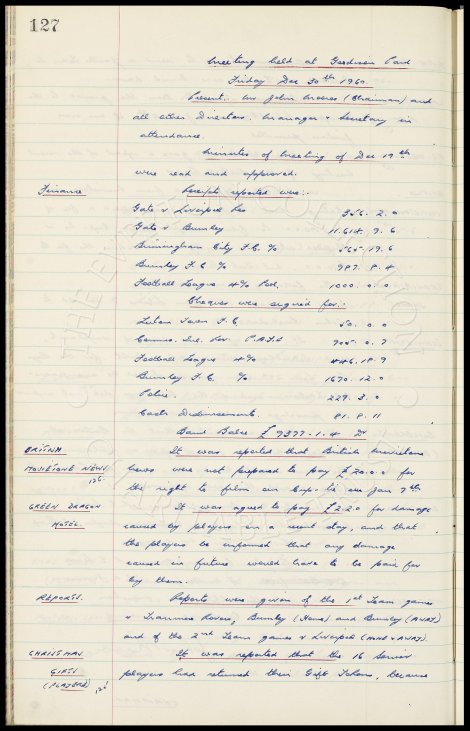 127
Meeting held at Goodison Park
Friday Dec 30th 1960.
Present:- Mr John Moores (Chairman) and
all other Directors. Manager & Secretary in
attendance.
Minutes of Meeting of Dec 19th
were read and approved.
Finance Receipts reported were:-
Gate v Liverpool Res 356. 2. 0
Gate v Burnley 11.614. 9. 6
Birmingham City F.C. % 565. 19. 6
Burnley F.C % 987. 8. 4
Football League 4% Pool. 1000. 0. 0
Cheques were signed for:-
Luton Town F.C 50. 0. 0
Football League 4% 446. 18. 9
Burnley F.C. % 1670. 12. 0
Police. 229. 3. 0
Cash Disbursements. 81. 8. 11
Bank Balce £9377-1-4 Dr
British It was reported that British Movietone
Movietone News News were not prepared to pay £20.0.0 for
the right to film our Cup-tie on Jan 7th
Green Dragon It was agreed to pay £2.2.0 for damage
Hotel. caused by players on a recent day, and that
the players be informed that any damage
caused in future would have to be paid for
by them.
Reports. Reports were given of the 1st Team games
v Tranmere Rovers, Burnley (Home) and Burnley (Away)
and of the 2nd Team games v Liverpool (Home & Away).
Christmas It was reported that the 16 Senior
Gifts players had returned their Gift Tokens, because
(Players)